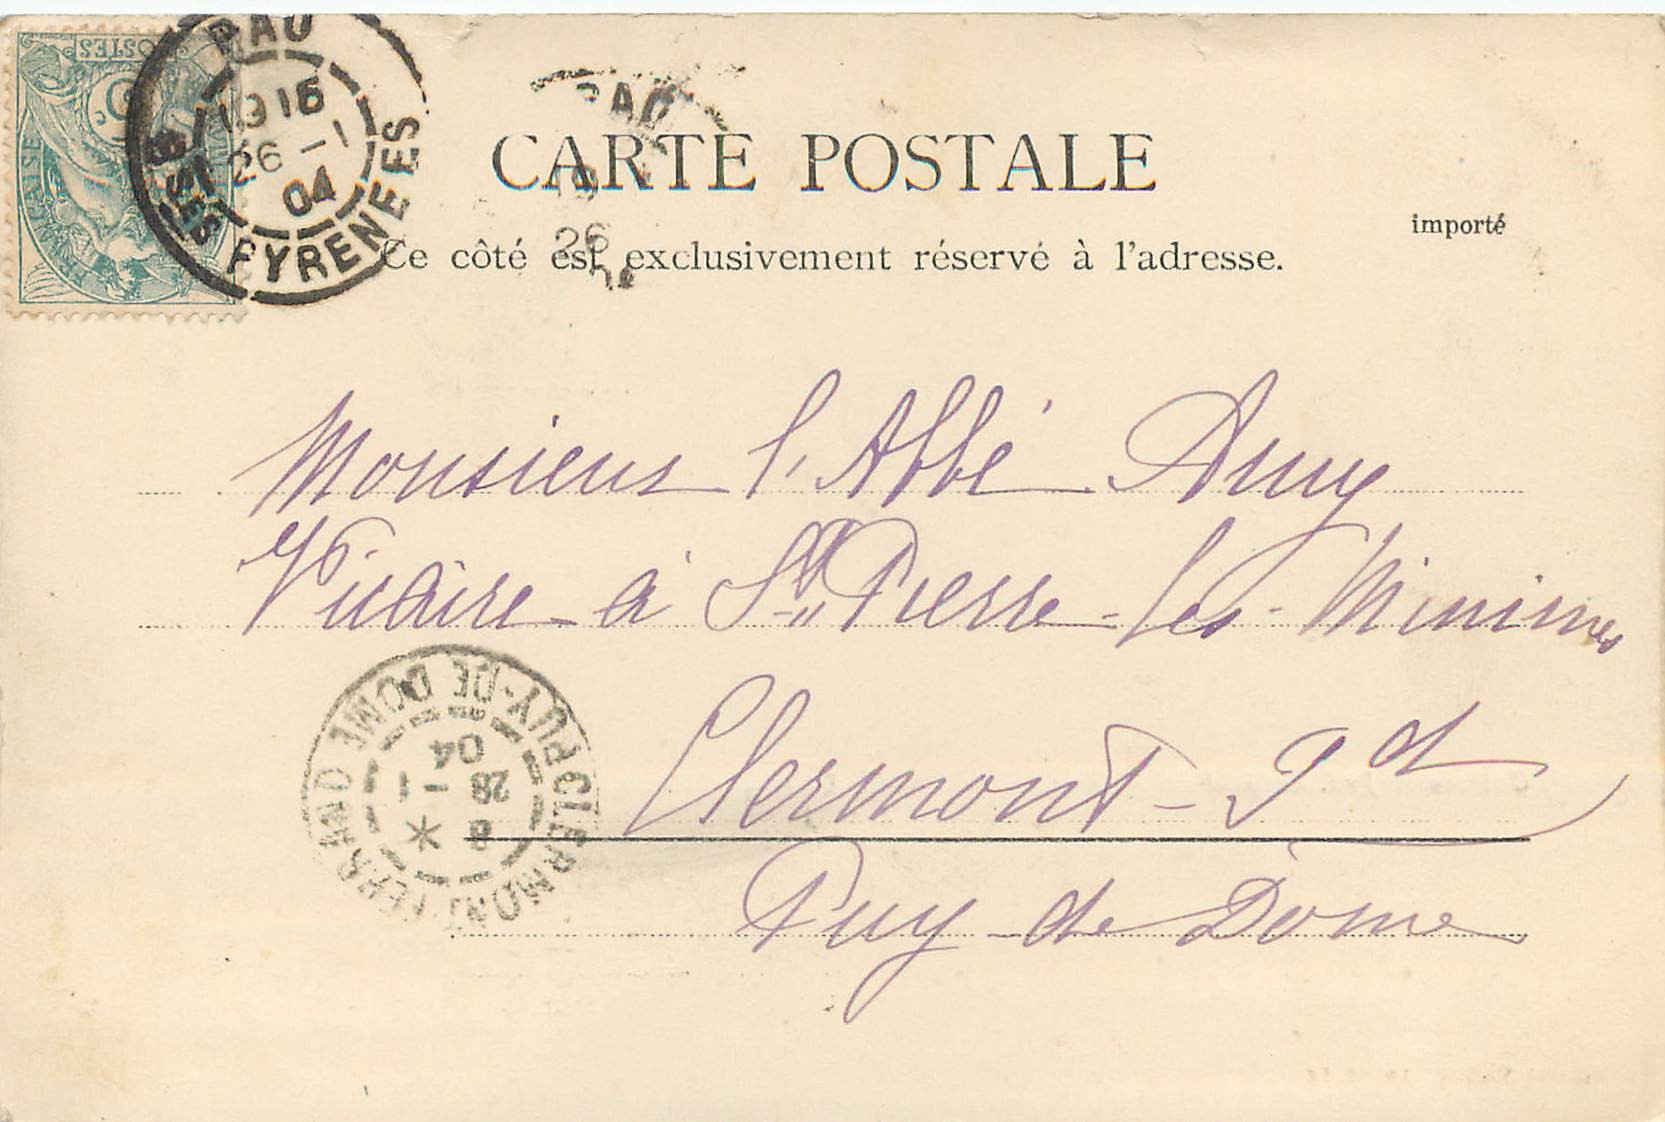 PAU
1915
26 - 1
04
BSES PYRENEES
POSTES
PAU
26
CARTE POSTALE
importé
Ce côté est exclusivement réservé à l'adresse.
Monsieur l'Abbé
Vicaire à St Pierre-les-Minimes
Clermont-Fd
Puy-de Dôme
CLERMONT-FERRAND
PUY-DE DOME
8 *
28 - 1
04